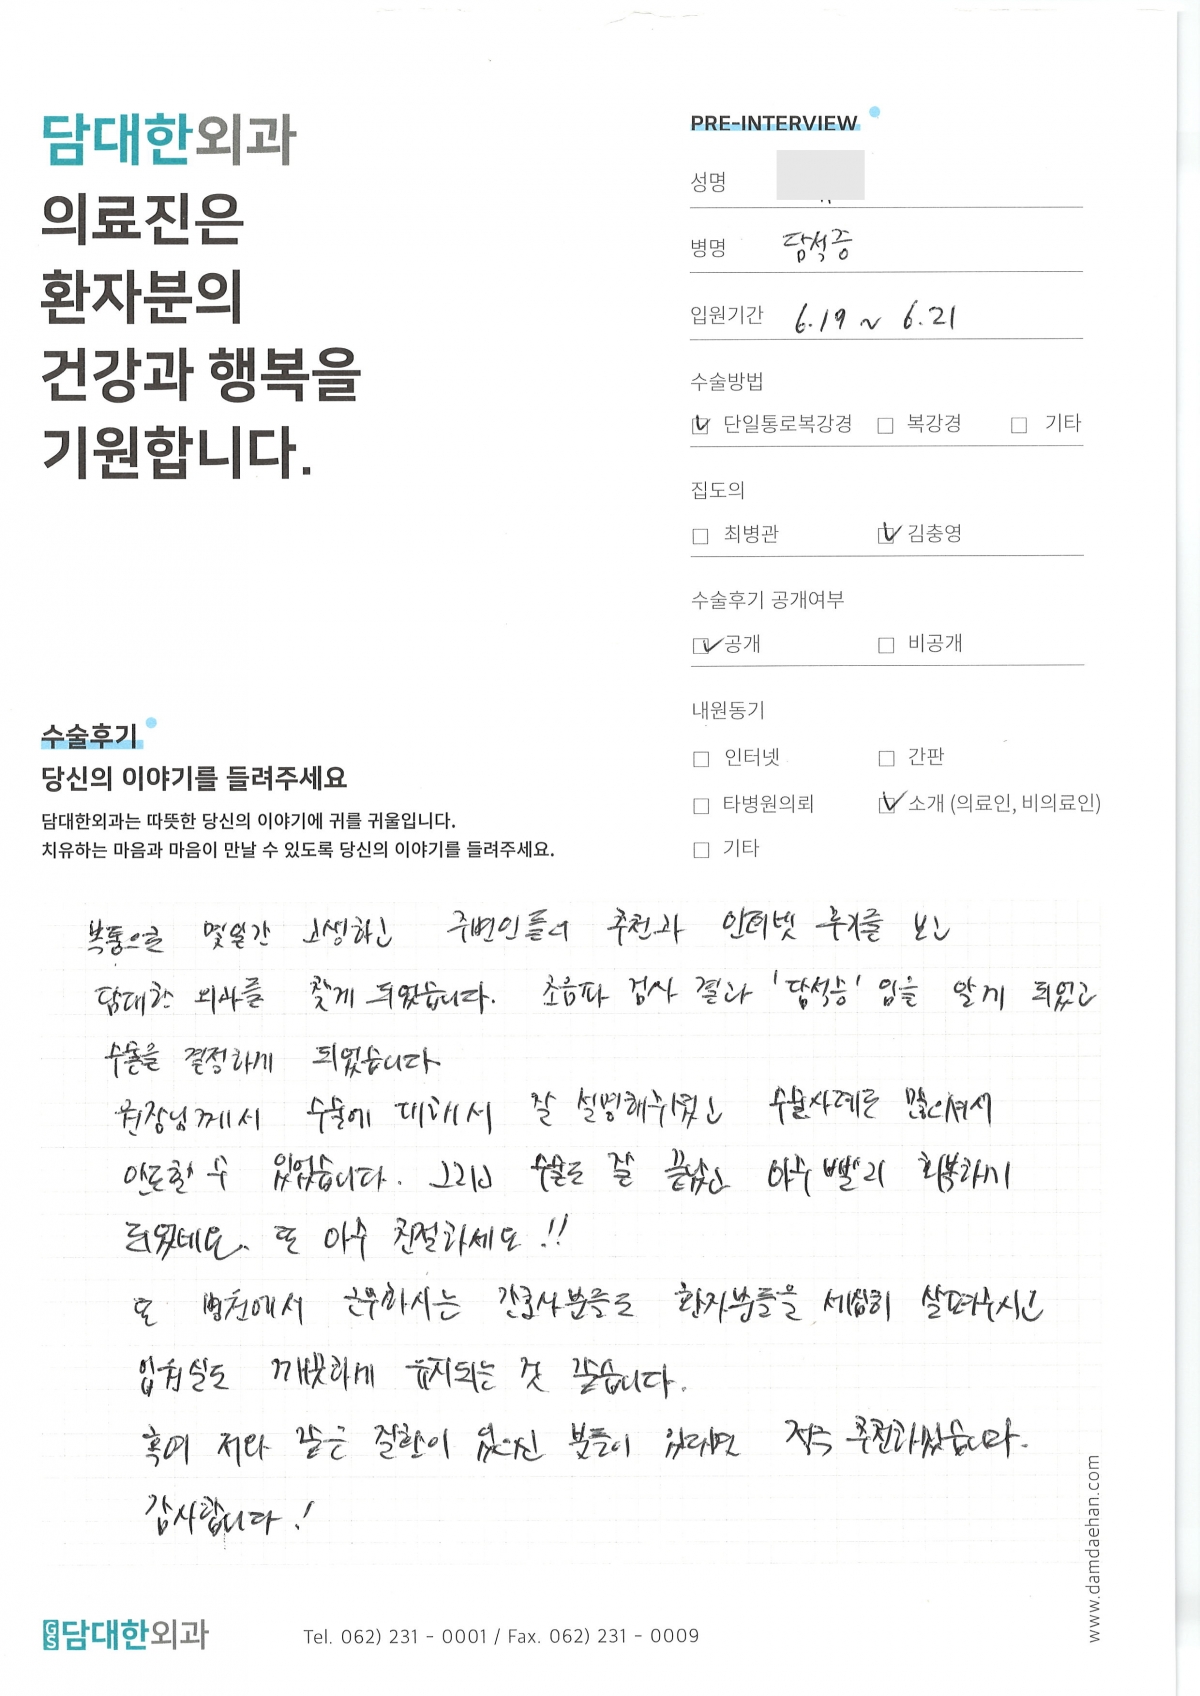 담대한외과
의료진은
환자분의
건강과 행복을
기원합니다.
PRE-INTERVIEW
성명
병명 담석증
입원기간 6.19 ~ 6.21
수술방법
단일통로복강경 복강경 기타
집도의
최병관 김충영
수술후기 공개여부
공개 비공개
내원동기
인터넷 간판
타병원의뢰 소개 (의료인, 비의료인)
기타
수술후기
당신의 이야기를 들려주세요
담대한외과는 따뜻한 당신의 이야기에 귀를 귀울입니다.
치유하는 마음과 마음이 만날 수 있도록 당신의 이야기를 들려주세요.
복통으로 몇일간 고생하고 주변인들의 추천과 인터넷 후기를 보고
담대한 외과를 찾게 되었습니다. 초음파 검사 결과 '담석증' 임을 알게 되었고
수술을 결정하게 되었습니다
원장님께서 수술에 대해서 잘 설명해주셨고 수술사례도 많으셔서
안도할 수 있었습니다. 그리고 수술도 잘 끝났고 아주 빨리 회복하게
되었네요. 또 아주 친절하세요!!
또 병원에서 근무하시는 간호사분들도 환자분들을 세심히 살펴주시고
입원실도 깨끗하게 유지되는 것 같습니다.
혹여 저와 같은 질환이 있으신 분들이 있다면 적극 추천하겠습니다.
감사합니다!
GS 담대한외과
Tel. 062) 231 - 0001 / Fax. 062) 231 - 0009
www.damdaehan.com